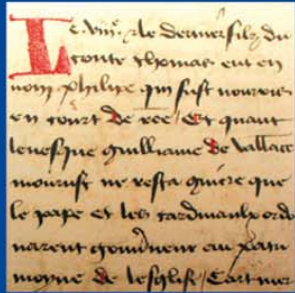 Le viiiᵉ et le dernier filz du
conte thomas eut en
nom philipe qui fust nourris
en court de roe / Et quant
levesque guilliame de vallace
mourust ne resta guiere que
le pape et les cardinaulx ordo
narent gouverneur au patri
moyne de lesglise / Car mer